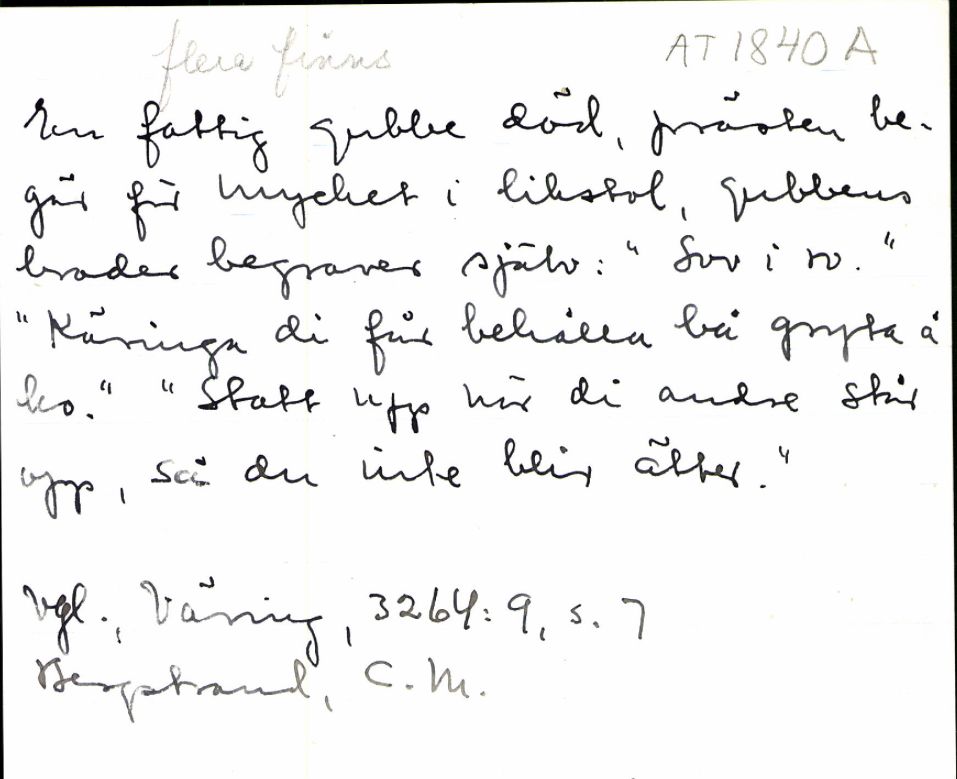 flera finns AT 1840 A
En fattig gubbe död, prästen be-
gär för mycket i likstol, gubbens
broder begraver själv: "Sov i ro."
"Käringa di får behålla bå gryta å
ko." "Statt upp når di andre står
opp, så du inte blir ätter."
Vgl., Väring, 3264: 9, s. 7
Bergstrand, C.M.